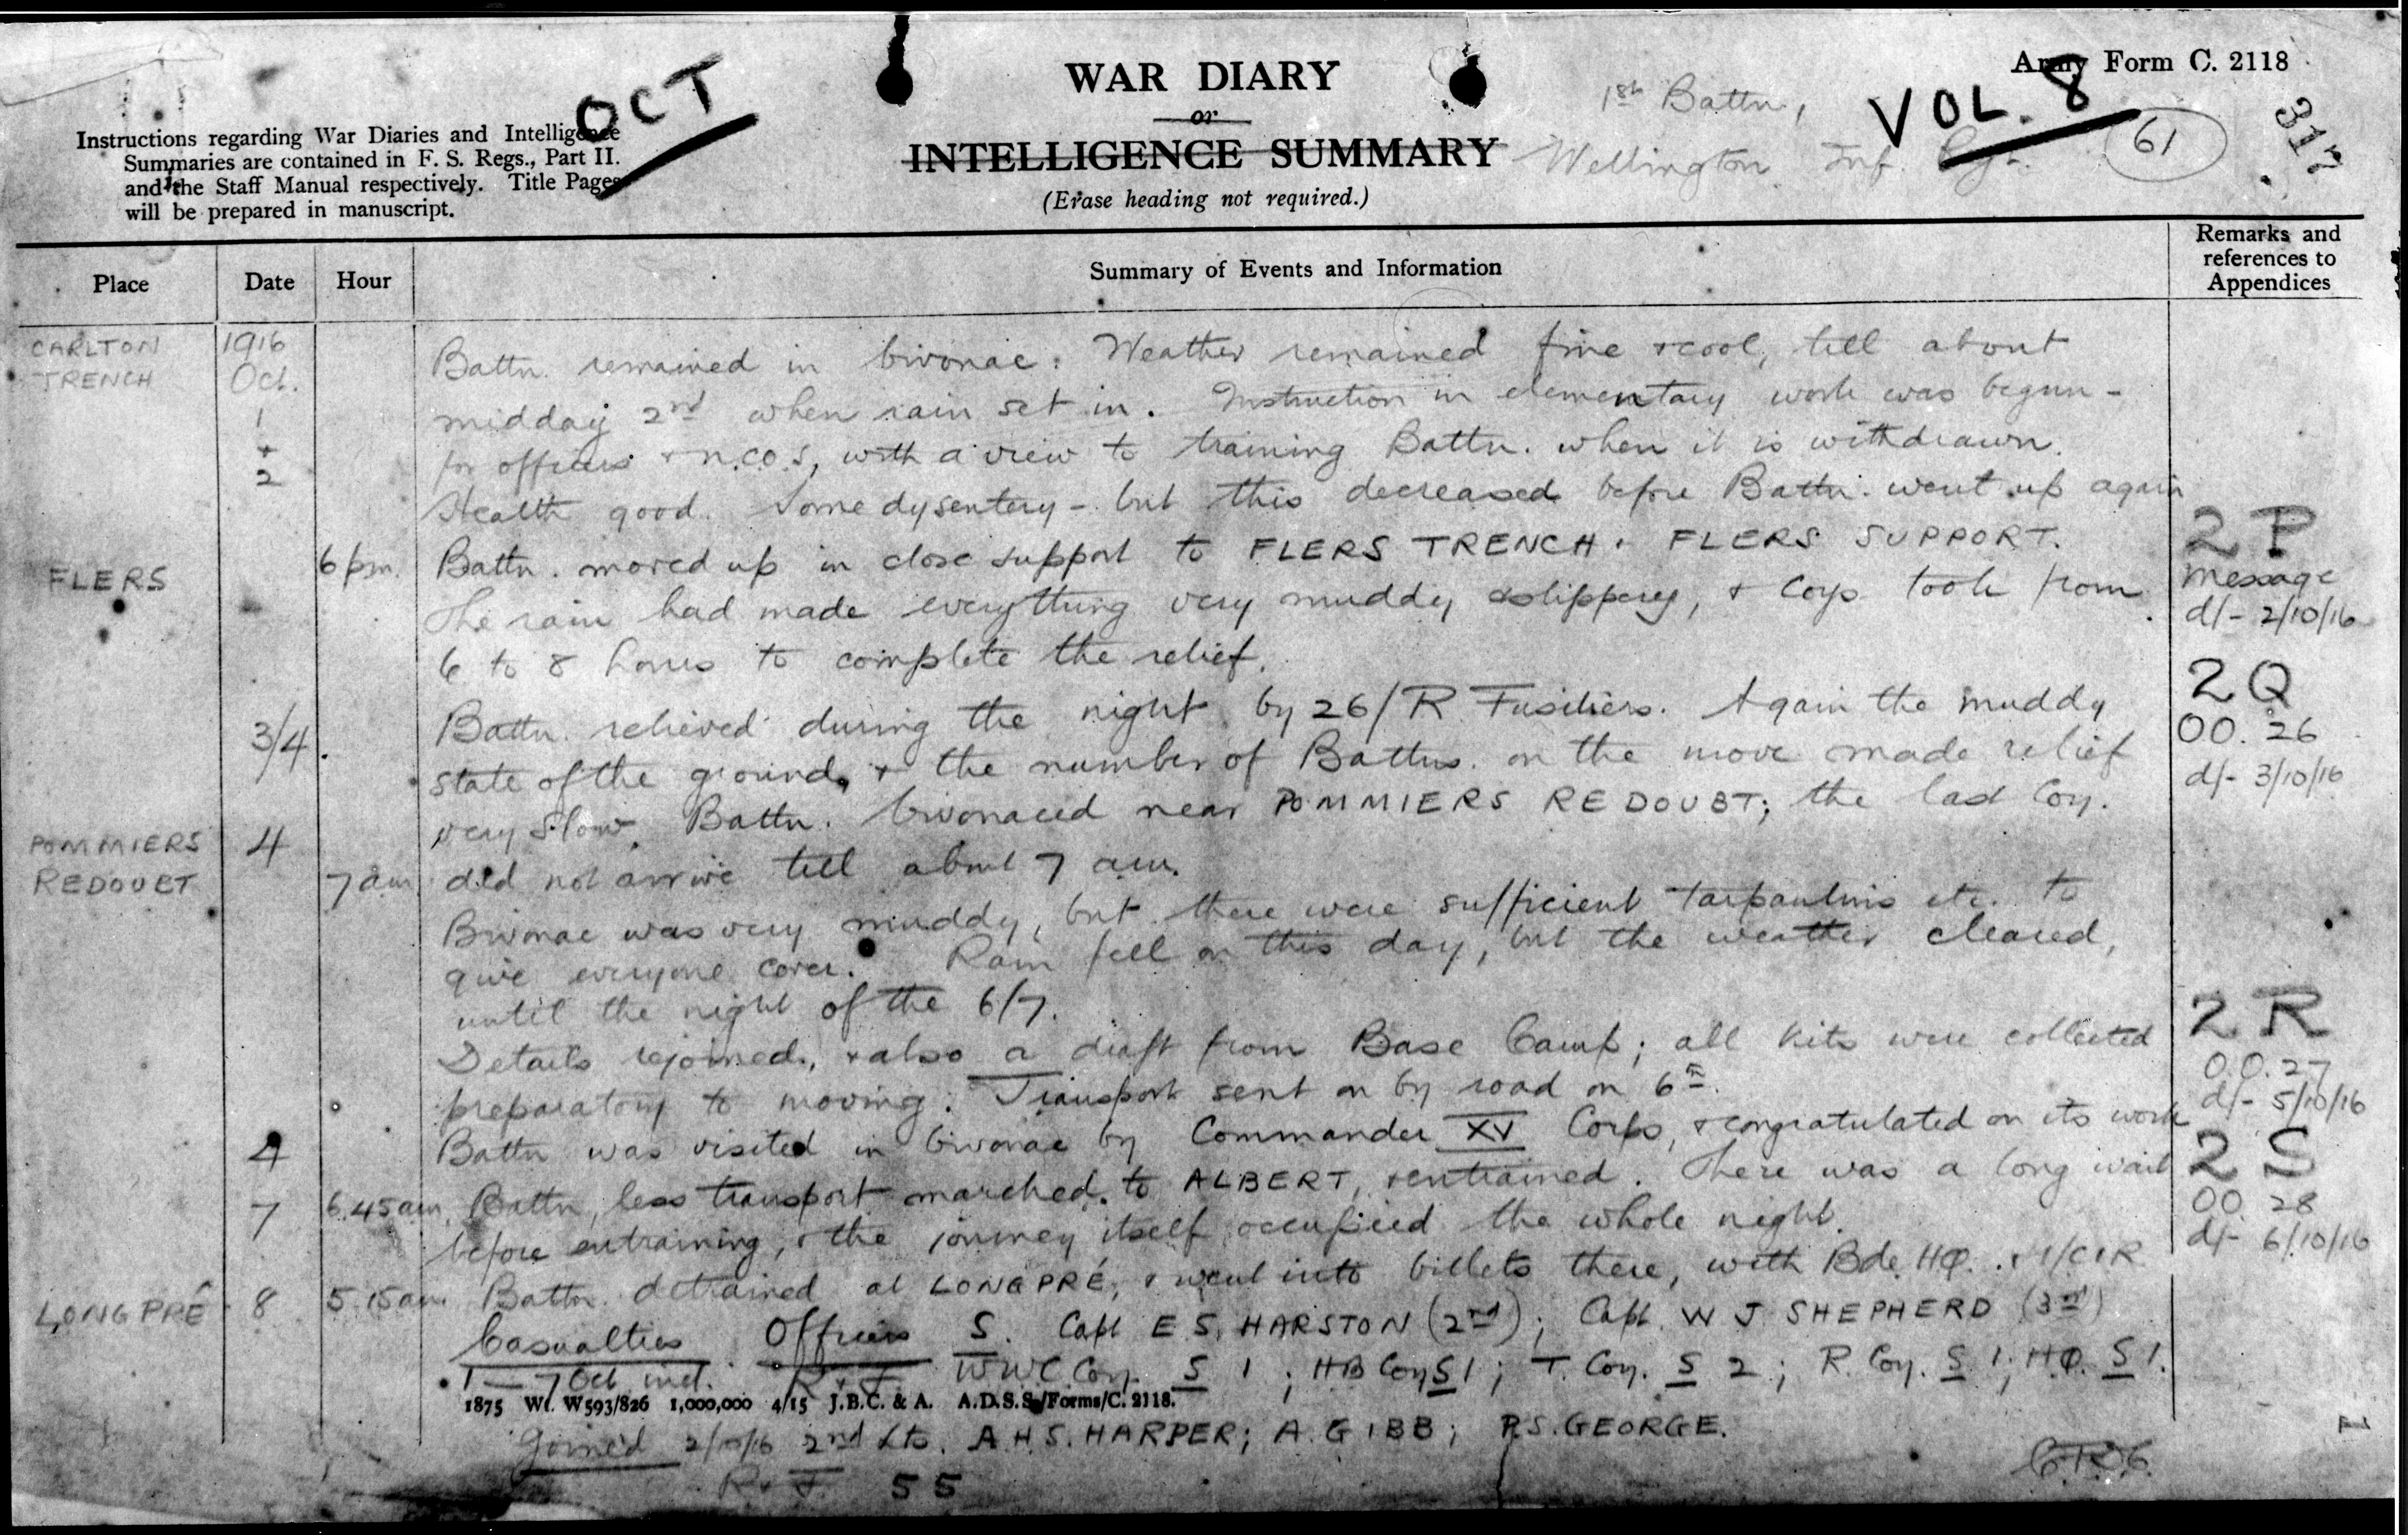 Army Form C. 2118
OCT
WAR DIARY
or
INTELLIGENCE SUMMARY
(Erase heading not required.)
1st Battn,
Wellington Inf. Rgt.
VOL. 8
61
317
Instructions regarding War Diaries and Intelligence
Summaries are contained in F. S. Regs., Part II.
and the Staff Manual respectively. Title Pages
will be prepared in manuscript.
Place Date Hour Summary of Events and Information Remarks and references to Appendices
CARLTON 1916 Battn. remained in bivouac. Weather remained fine & cool, till about
TRENCH Oct. midday 2nd when rain set in. Instruction in elementary work was begun -
1 + 2 for officers & N.C.O.s, with a view to training Battn. when it is withdrawn.
Health good. Some dysentery - but this decreased before Battn. went up again
FLERS 6 pm. Battn. moved up in close support to FLERS TRENCH & FLERS SUPPORT. 2P
The rain had made everything very muddy & slippery, & Coys took from Message
6 to 8 hours to complete the relief. d/- 2/10/16
3/4. Battn. relieved during the night by 26/R Fusiliers. Again the muddy 2Q
state of the ground, & the number of Battns. on the move made relief OO. 26
very slow. Battn. bivouaced near POMMIERS REDOUBT; the last Coy. d/- 3/10/16
POMMIERS 4
REDOUBT 7 am did not arrive till about 7 am.
Bivouac was very muddy, but there were sufficient tarpaulins etc. to
give everyone cover. Rain fell on this day, but the weather cleared,
until the night of the 6/7.
Details rejoined, & also a draft from Base Camp; all kits were collected 2R
preparatory to moving. Transport sent on by road on 6th. O.O. 27
d/- 5/10/16
4 Battn was visited in bivouac by Commander XV Corps, & congratulated on its work
7 6.45 am Battn, less transport marched to ALBERT, & entrained. There was a long wait 2S
before entraining, & the journey itself occupied the whole night. OO. 28
d/- 6/10/16
LONGPRÉ 8 5.15 am Battn. detrained at LONGPRÉ, & went into billets there, with Bde. HQ. & 1/CIR
Casualties Officers S. Capt E S. HARSTON (2nd); Capt. W J SHEPHERD (3rd)
1 - 7 Oct incl. R & F WWC Coy S 1; HB Coy S 1; T. Coy. S 2; R Coy. S 1; HQ. S 1.
1875 Wt. W593/826 1,000,000 4/15 J.B.C. & A. A.D.S.S./Forms/C. 2118.
Joined 2/10/16 2nd Lts. A.H.S. HARPER; A. GIBB; P.S. GEORGE.
R & F. 55